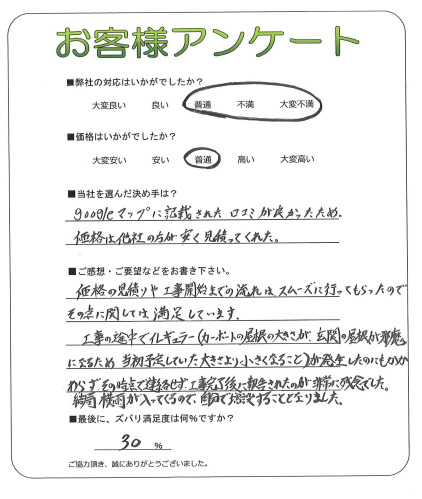 お客様アンケート
■弊社の対応はいかがでしたか？
大変良い 良い 普通 不満 大変不満
■価格はいかがでしたか？
大変安い 安い 普通 高い 大変高い
■当社を選んだ決め手は？
googleマップに記載された口コミが良かったため。
価格は他社の方が安く見積ってくれた。
■ご感想・ご要望などをお書き下さい。
価格の見積りや工事開始までの流れは、スムーズに行ってもらったので
その点に関しては満足しています。
工事の途中でイレギュラー(カーポートの屋根の大きさが、玄関の屋根が邪魔
になるため当初予定していた大きさより小さくなること)が発生したのにもかか
わらずその時点で連絡せず工事完了後に報告されたのが非常に残念でした。
結局横雨が入ってくるので、することとなりました。
■最後に、ズバリ満足度は何%ですか？
30 %
ご協力頂き、誠にありがとうございました。